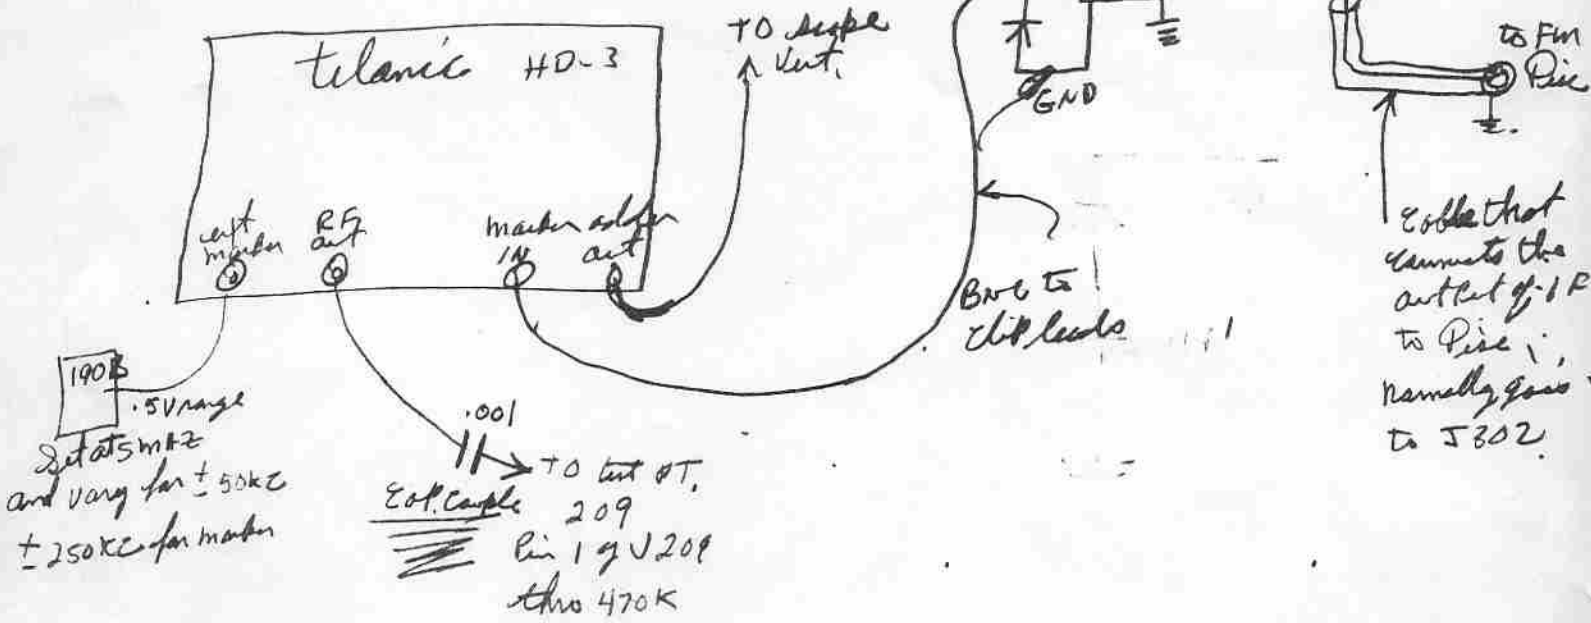 telonic HD-3
TO scope
Vert.
GND
to FM
Disc
ext
marker
RF
out
marker adder
IN out
BNC to
clip leads
Cable that
connects the
output of IF
to Disc
normally goes
to J302.
190B
.5V range
Set at 5 mHZ
and vary for ± 50KC
± 250KC for marker
.001
Cap. Couple
TO test PT.
209
Pin 1 of V209
thro 470K